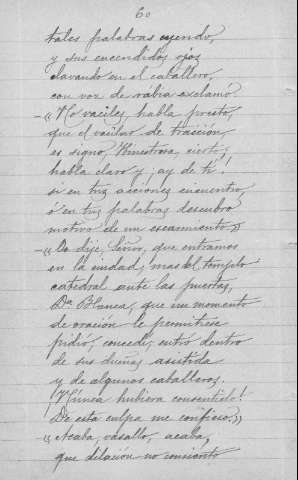 60
tales palabras oyendo,
y sus encendidos ojos
clavando en el caballero,
con voz de rabia exclamó:
—«No vaciles, habla presto,
que el vacilar de traición
es signo, Hinestrosa, cierto;
habla claro y ¡ay de ti!
si en tus acciones encuentro,
ó en tus palabras descubro
motivo de un escarmiento.»
—«Os dije, Señor, que entramos
en la ciudad; mas del templo
catedral ante las puertas,
Dª Blanca, que un momento
de oración le permitiese
pidió; concedí, entró dentro
de sus dueñas asistida
y de algunos caballeros.
¡Núnca hubiera consentido!
De esta culpa me confieso.»
«Acaba, vasallo, acaba,
que dilación no consiento